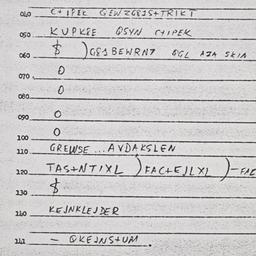 040 C+IPEK GEWZGBJS+TRIKT
050 KUPKEE QSYN C+IPEK
060 $ )GBJBEWRNT QGL AJA SKIA
070 0
080 0
090 0
100 0
110 GREWSE...AVDAKSLEN
120 TAS+NTIXL )FAC+EJLXL )-FAE
130 $
140 KEJNKLEJDER
141 - QKEJNS+UM.